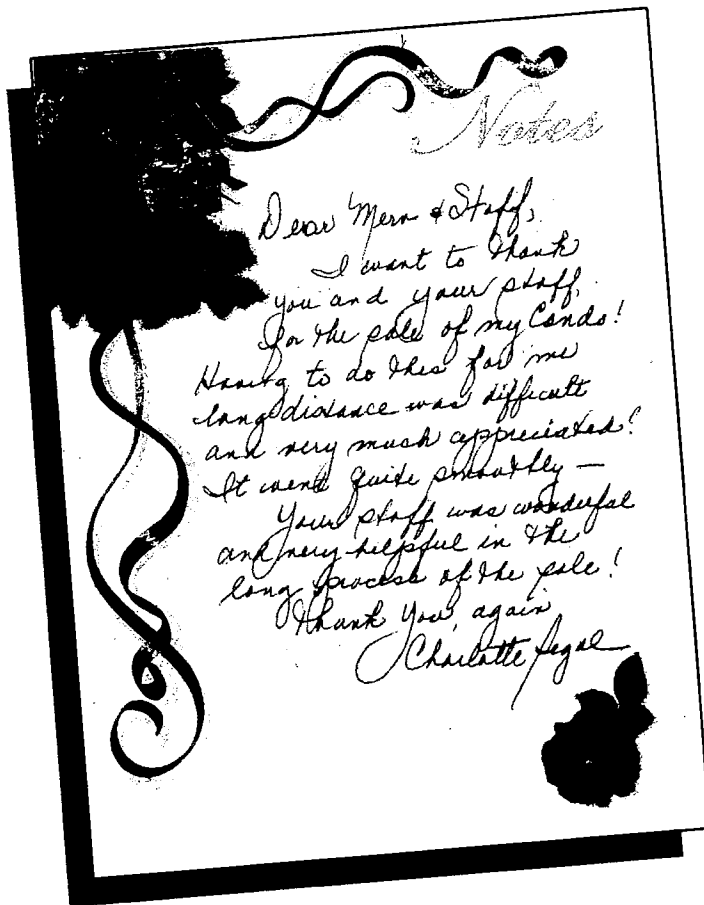 Notes
Dear Merv & Staff,
I want to thank
you and your staff,
for the sale of my Condo!
Having to do this for me
long distance was difficult
and very much appreciated!
It went quite smoothly —
Your staff was wonderful
and very helpful in the
long process of the sale!
Thank you, again
Charlotte Segal